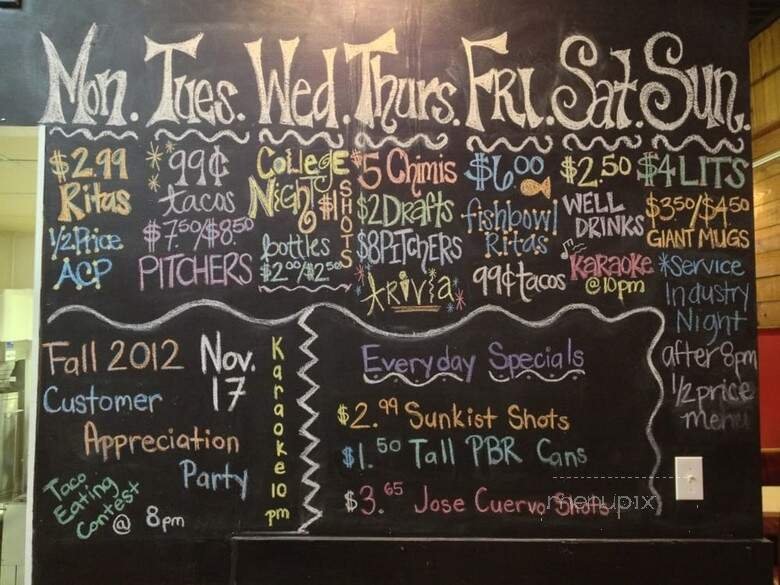 Mon. Tues. Wed. Thurs. Fri. Sat. Sun.
$2.99
Ritas
1/2 Price
ACP
99¢
tacos
$7.50/$8.50
PITCHERS
College
Night $1 SHOTS
bottles
$2.00/$2.50
$5 Chimis
$2 Drafts
$8 PITCHERS
TRIVIA
$6.00
fishbowl
Ritas
99¢ tacos
$2.50
WELL
DRINKS
KARAOKE
@10pm
$4 LITS
$3.50/$4.50
GIANT MUGS
*Service
Industry
Night
after 8pm
1/2 price
menu
Fall 2012
Nov.
17
Customer
Appreciation
Party
Taco
Eating
Contest
@ 8pm
Karaoke 10
pm
Everyday Specials
$2.99 Sunkist Shots
$1.50 Tall PBR Cans
$3.65 Jose Cuervo Shots
menupix